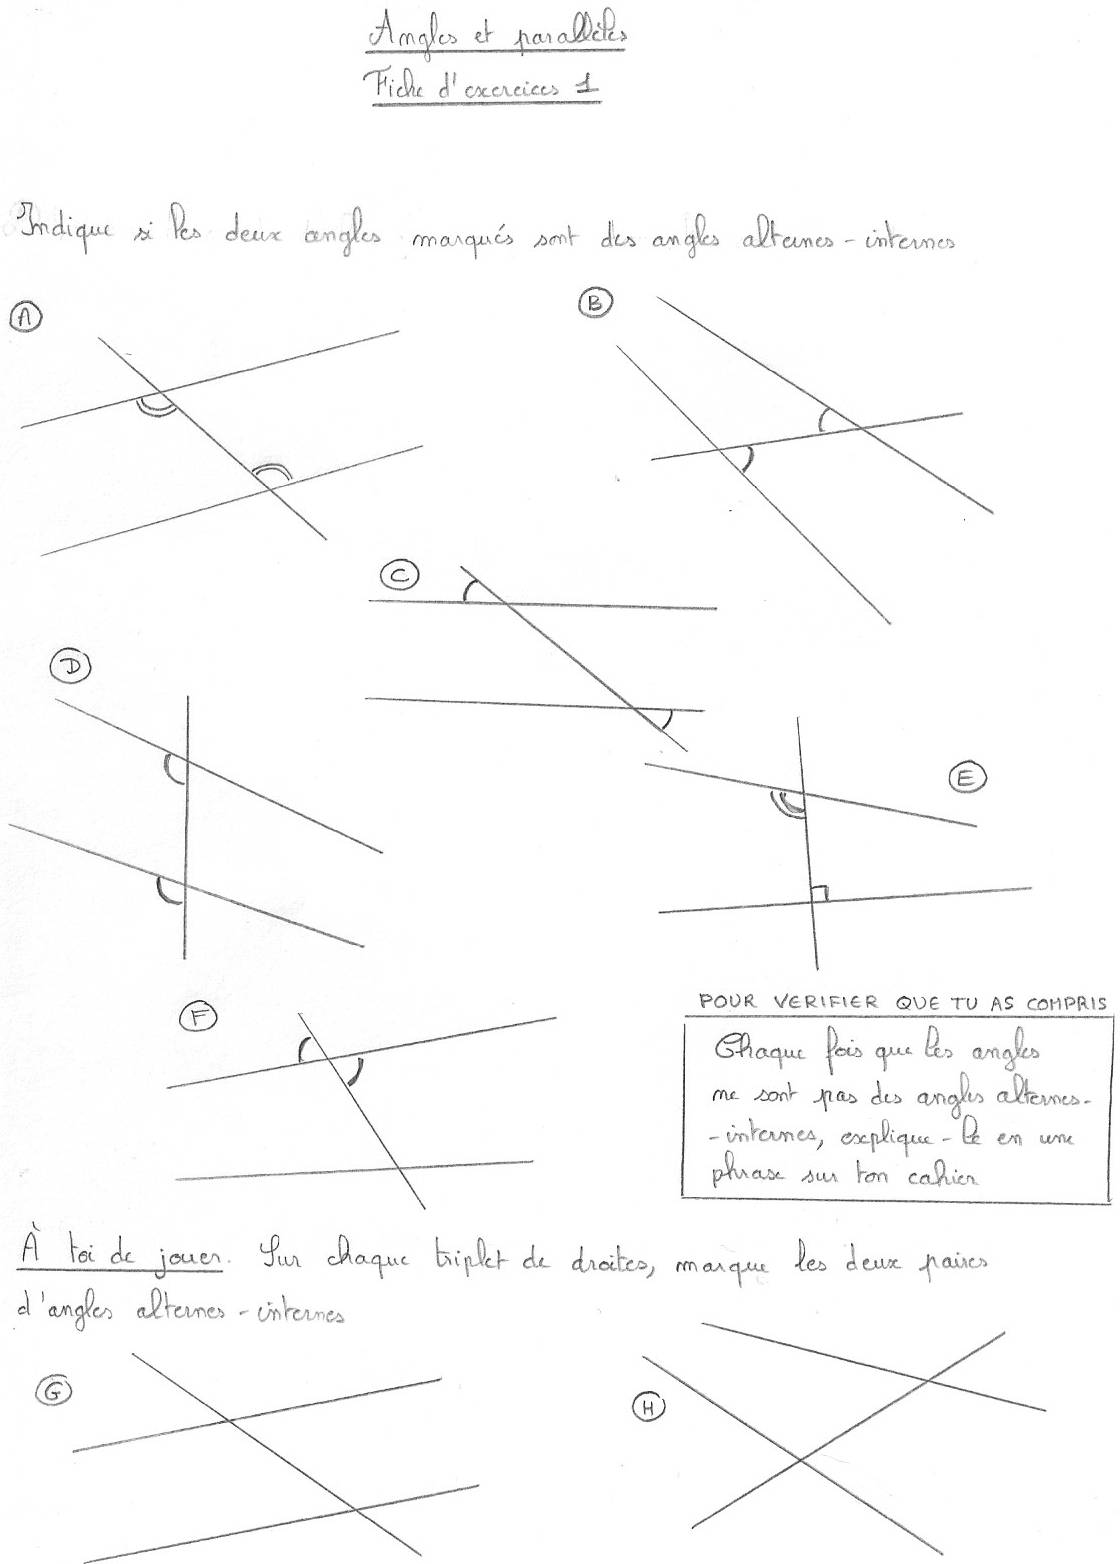 Angles et parallèles
Fiche d'exercices 1
Indique si les deux angles marqués sont des angles alternes-internes
A
B
C
D
E
F
POUR VERIFIER QUE TU AS COMPRIS
Chaque fois que les angles
ne sont pas des angles alternes-
-internes, explique-le en une
phrase sur ton cahier
À toi de jouer. Sur chaque triplet de droites, marque les deux paires
d'angles alternes-internes
G
H